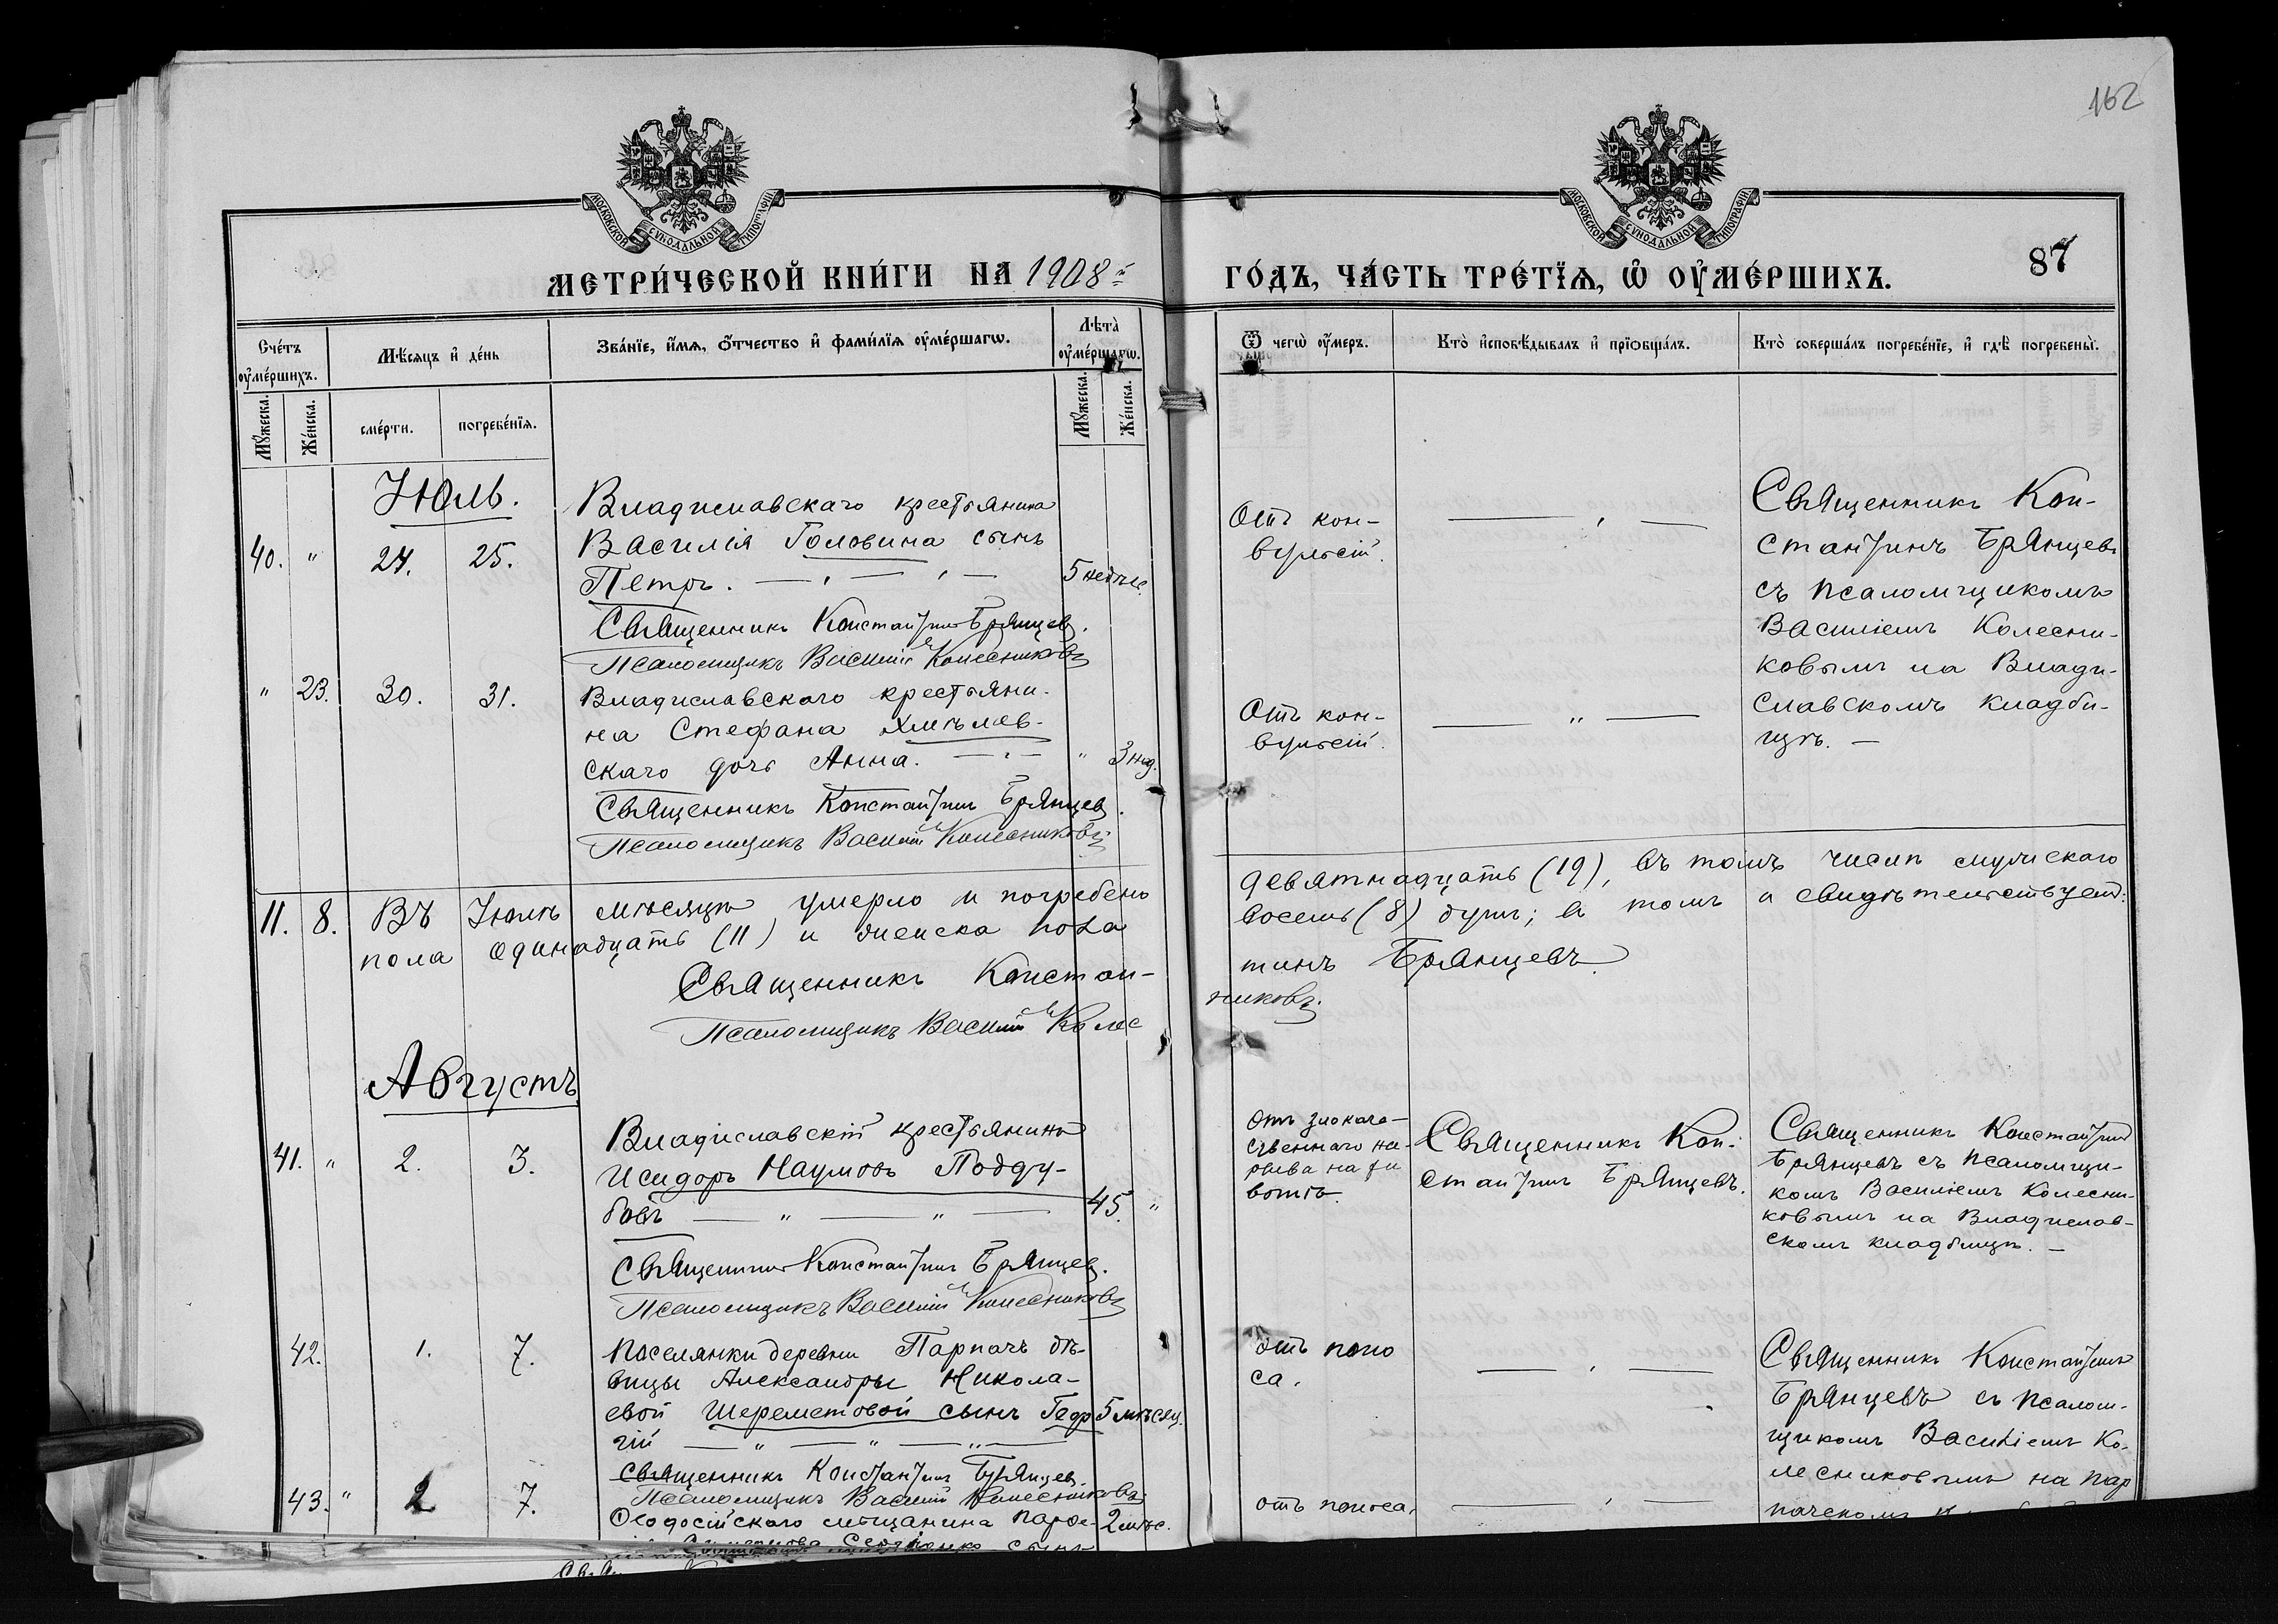 162
МОСКОВСКОЙ СѴНОДАЛЬНОЙ ТИПОГРАФІИ
МОСКОВСКОЙ СѴНОДАЛЬНОЙ ТИПОГРАФІИ
МЕТРИ́ЧЕСКОЙ КНИ́ГИ НА 1908й
ГО́ДЪ, ЧА́СТЬ ТРЕ́ТЇѦ, Ѡ҆ ОУ҆МЕ́РШИХЪ.
87
Сче́тъ оу҆ме́ршихъ.
Мѣ́сѧцъ и҆ де́нь
Зва́нїе, и҆́мѧ, ѻ҆́тчество и҆ фами́лїѧ оу҆ме́ршагѡ.
Лѣ́та оу҆ме́ршагѡ.
Ѿ чегѡ̀ оу҆́меръ.
Кто̀ и҆сповѣ́дывалъ и҆ прїѡбща́лъ.
Кто̀ соверша́лъ погребе́нїе, и҆ гдѣ̀ погребены̀.
Мꙋ́жеска.
Же́нска.
сме́рти.
погребе́нїѧ.
Мꙋ́жеска.
Же́нска.
Іюль.
40. " 24. 25.
Владиславскаго крестьянина
Василія Головина сынъ
Петръ. 5 недѣл.
Священникъ Константинъ Брянцев.
Псаломщикъ Василій Колесниковъ
Отъ кон-
вульсій.
Священникъ Кон-
стантинъ Брянцевъ
съ псаломщикомъ
Василіемъ Колесни-
ковымъ на Влади-
славскомъ кладби-
щѣ. —
" 23. 30. 31.
Владиславскаго крестьяни-
на Стефана Хмѣлев-
скаго дочь Анна. " 3 нед.
Священникъ Константинъ Брянцев.
Псаломщикъ Василій Колесниковъ
Отъ кон-
вульсій.
11. 8. Въ Іюлѣ мѣсяцѣ умерло и погребено
пола одинадцать (11) и женска пола
девятнадцать (19), въ томъ числѣ мужскаго
восемь (8) душъ; въ томъ и свидѣтельствуемъ:
Священникъ Констан-
тинъ Брянцевъ.
Псаломщикъ Василій Колес
никовъ.
Августъ
41. " 2. 3.
Владиславскій крестьянинъ
Исидоръ Наумовъ Подду-
бовъ 45. "
Священникъ Константинъ Брянцев.
Псаломщикъ Василій Колесниковъ
Отъ злокаче-
ственнаго на-
рыва на жи
вотѣ.
Священникъ Кон-
стантинъ Брянцевъ.
Священникъ Константинъ
Брянцевъ съ псаломщи-
комъ Василіемъ Колесни-
ковымъ на Владислав-
скомъ кладбищѣ. —
42. 1. 7.
Поселянки деревни Парпачъ дѣ-
вицы Александры Никола-
евой Шереметовой сынъ Геор 5 мѣсяц.
гій
Священникъ Константинъ Брянцев.
Псаломщикъ Василій Колесниковъ
отъ поно
са.
Священникъ Константинъ
Брянцевъ съ псалом-
щикомъ Василіемъ Ко-
лесниковымъ на Пар
пачскомъ
43. " 2 7.
Ѳеодосійскаго мѣщанина 2 мѣс.
сынъ
отъ поноса.